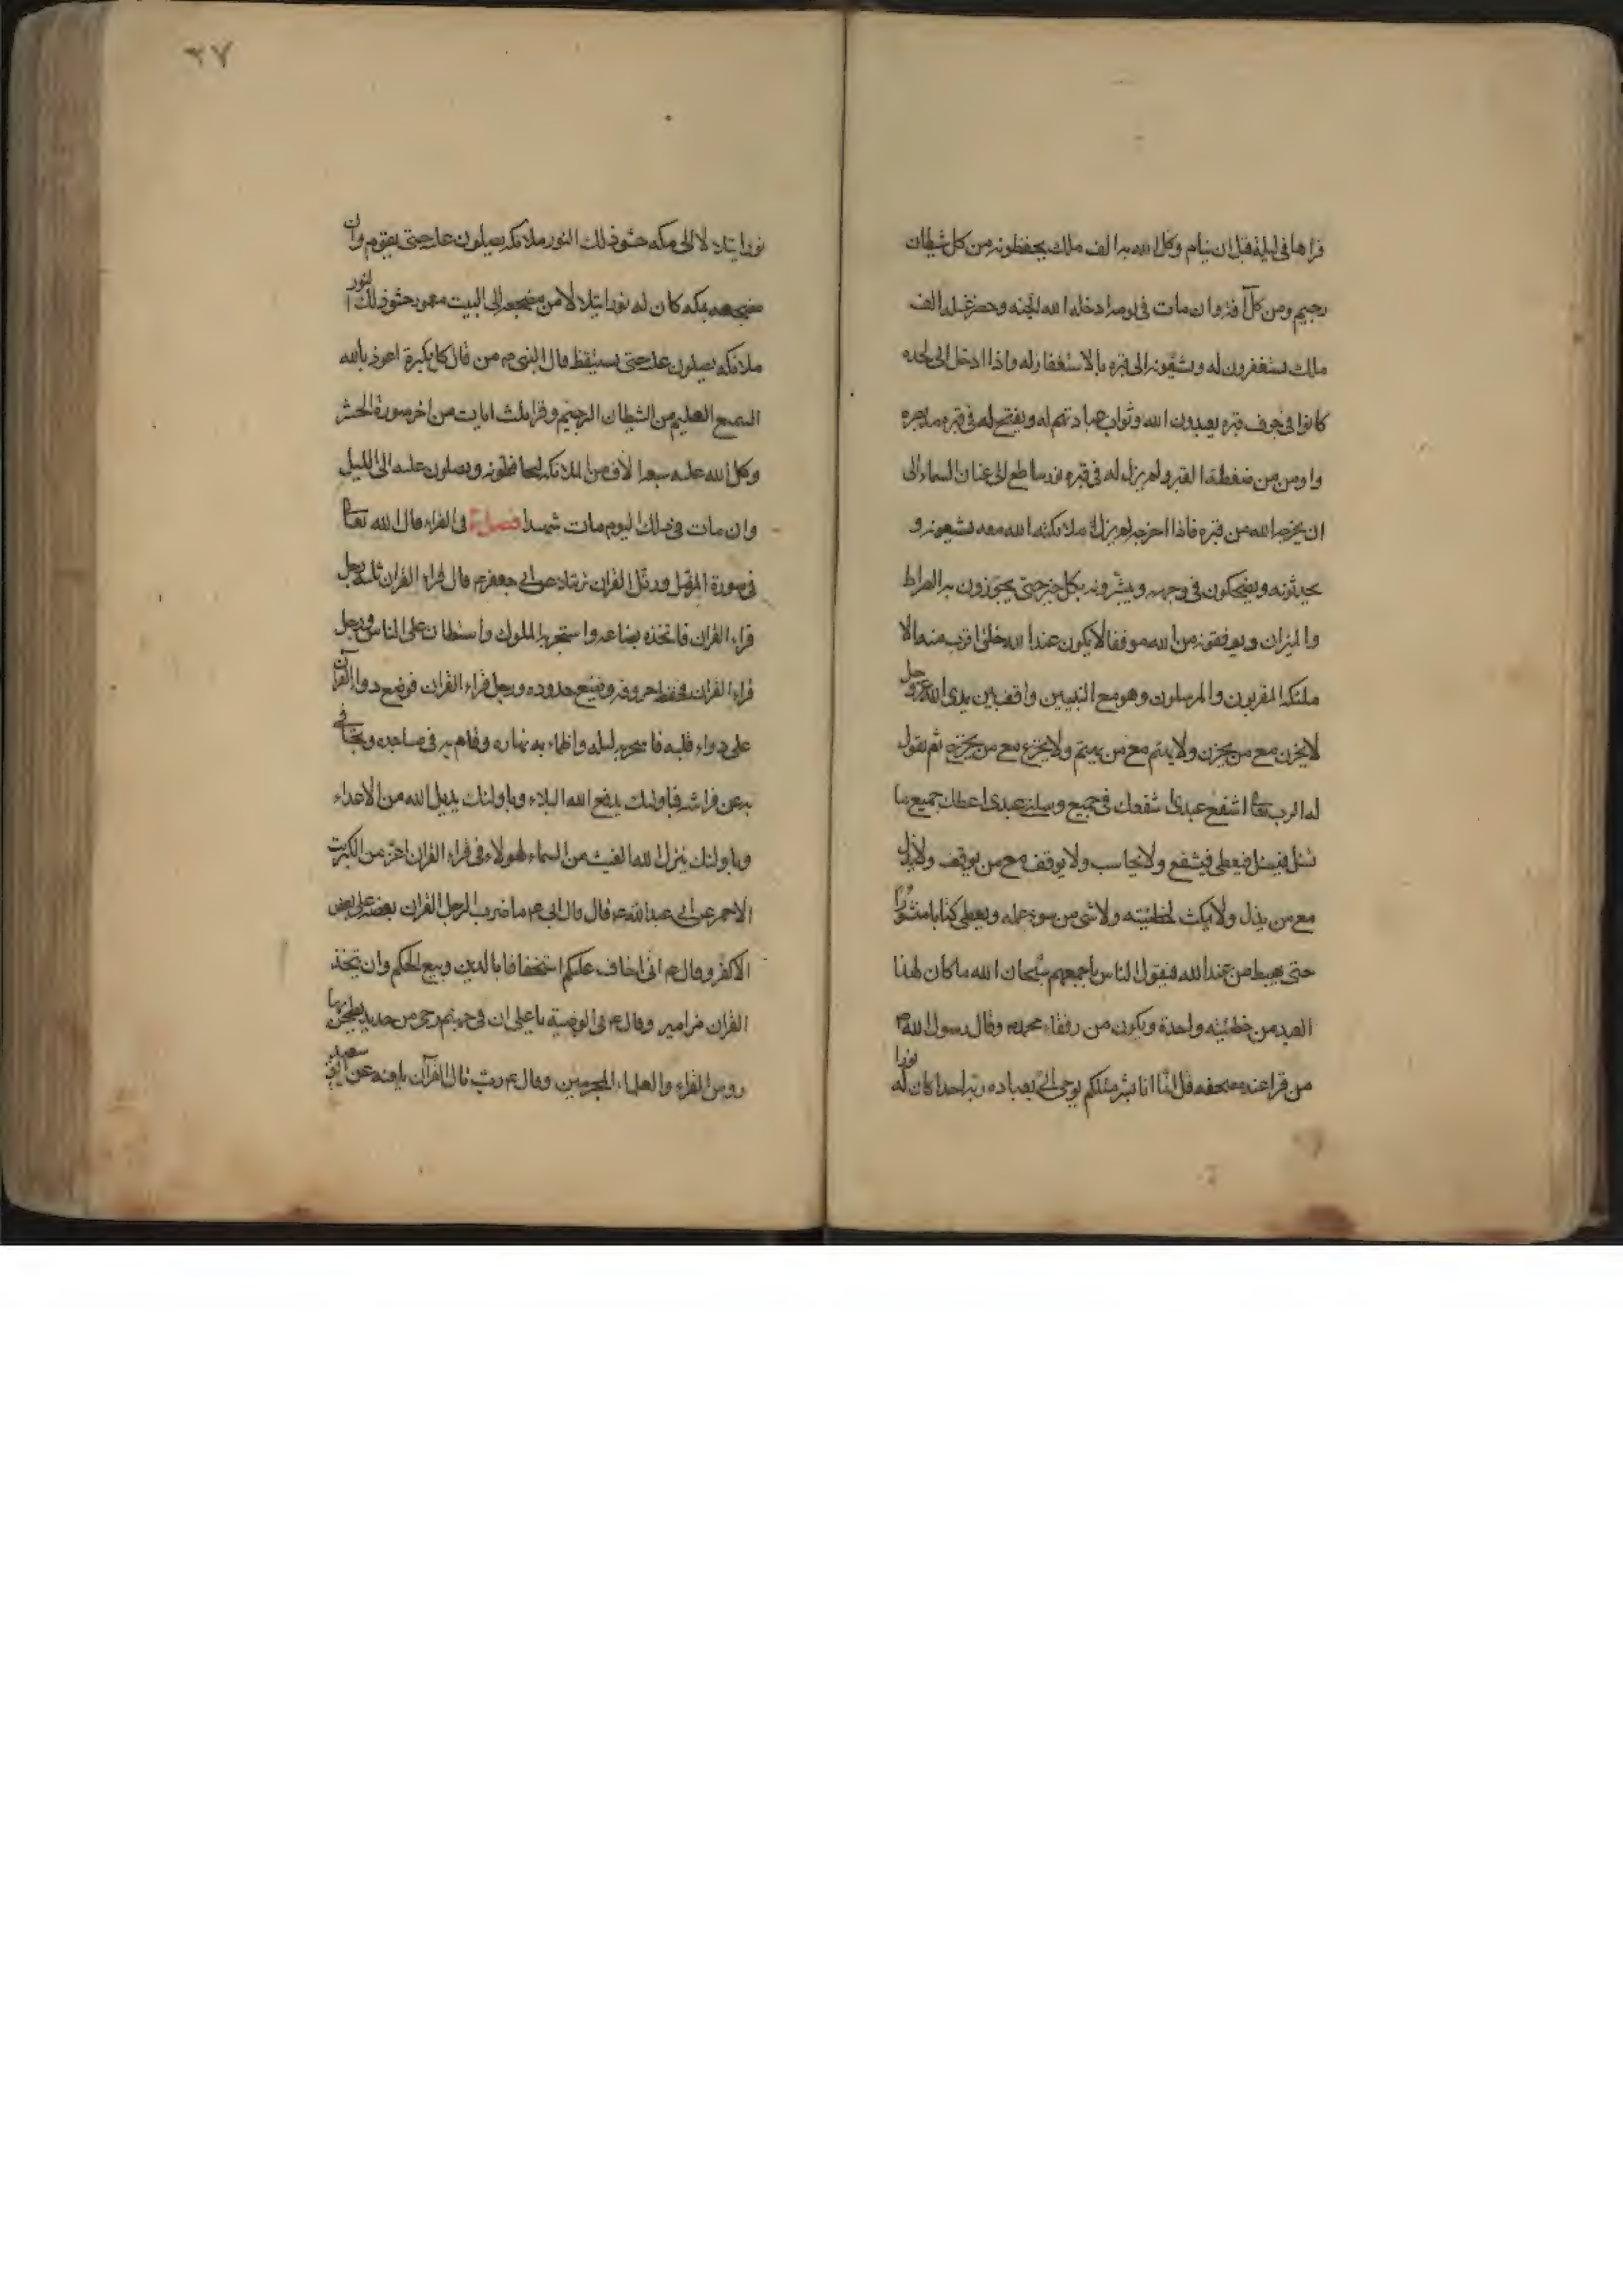 قراها فى ليلة قبل ان ينام وكل الله به الف ملك يحفظونه من كل شيطان
رجيم ومن كل آفة وان مات فى يومه ادخله الله الجنه وحضر غسله الف
ملك يستغفرون له ويشيعونه الى قبره بالاستغفار له واذا ادخل الى لحده
كانوا فى جوف قبره يعبدون الله وثواب عبادتهم له ويفتح له فى قبره مد بصره
واومن من ضغطة القبر ولم يزل له فى قبره نور ساطع الى عنان السماء الى
ان يخرجه الله من قبره فاذا اخرجه لم يزل ملائكة الله معه يشيعونه و
يحدثونه ويضحكون فى وجهه ويبشرونه بكل خير حتى يجوزون به الصراط
والميزان ويوقفونه من الله موقفا لا يكون عند الله خلق اقرب منه الا
ملئكه المقربون والمرسلون وهو مع النبيين واقف بين يدى الله عز وجل
لا يحزن مع من يحزن ولا يهتم مع من يهتم ولا يجزع مع من يجزع ثم يقول
له الرب تعالى اشفع عبدى اشفعك فى جميع وسلنى عبدى اعطك جميع ما
تسئل فيسئل فيعطى فيشفع ولا يحاسب ولا يوقف مع من يوقف ولا يذل
مع من يذل ولا يكتب لخطيئته ولا شى من سوء عمله ويعطى كتابا منشورا
حتى يهبط من عند الله فيقول الناس باجمعهم سبحان الله ما كان لهذا
العبد من خطيئه واحدة ويكون من رفقاء محمد وقال رسول الله ص
من قرا عند مضجعه قل انما انا بشر مثلكم يوحى الى بعبادة ربه احدا كان له نورا
نورا يتلالا الى مكه حشو ذلك النور ملائكه يصلون عليه حتى يقوم وان
مضجعه بمكه كان له نورا يتلالا من مضجعه الى البيت معمور حشو ذلك النور
ملائكه يصلون عليه حتى يستيقظ قال النبى م من قال كل بكرة اعوذ بالله
السميع العليم من الشيطان الرجيم وقرا ثلث ايات من اخر سورة الحشر
وكل الله عليه سبعه الاف من الملائكه يحافظونه ويصلون عليه الى الليل
وان مات فى ذلك اليوم مات شهيدا فصل فى القراء قال الله تعالى
فى سورة المزمل ورتل القران ترتيلا عن ابى جعفر م قال قراء القران ثلثه رجل
قراء القران فاتخذه بضاعه واستجر به الملوك واستطال على الناس ورجل
قراء القران فحفظ حروفه وضيع حدوده ورجل قراء القران فوضع دواء القرآن
على دواء قلبه فاسهر به ليله واظماء به نهاره وقام به فى مساجده وتجافى
به عن فراشه فباولئك يدفع الله البلاء وباولئك يديل الله من الاعداء
وباولئك ينزل الله الغيث من السماء لهولاء فى قراء القران اعز من الكبريت
الاحمر عن ابى عبد الله ع قال قال ابى ع ما ضرب الرجل القران بعضه على بعض
الا كفر وقال ع انى اخاف عليكم استخفافا بالدين وبيع الحكم وان تتخذ
القران مزامير وقال ع فى الوصية يا على ان فى جهنم رحى من حديد يطحن بها
روس القراء والعلماء المجرمين وقال ع رب تال القرآن يلعنه عن سعيد
٣٧